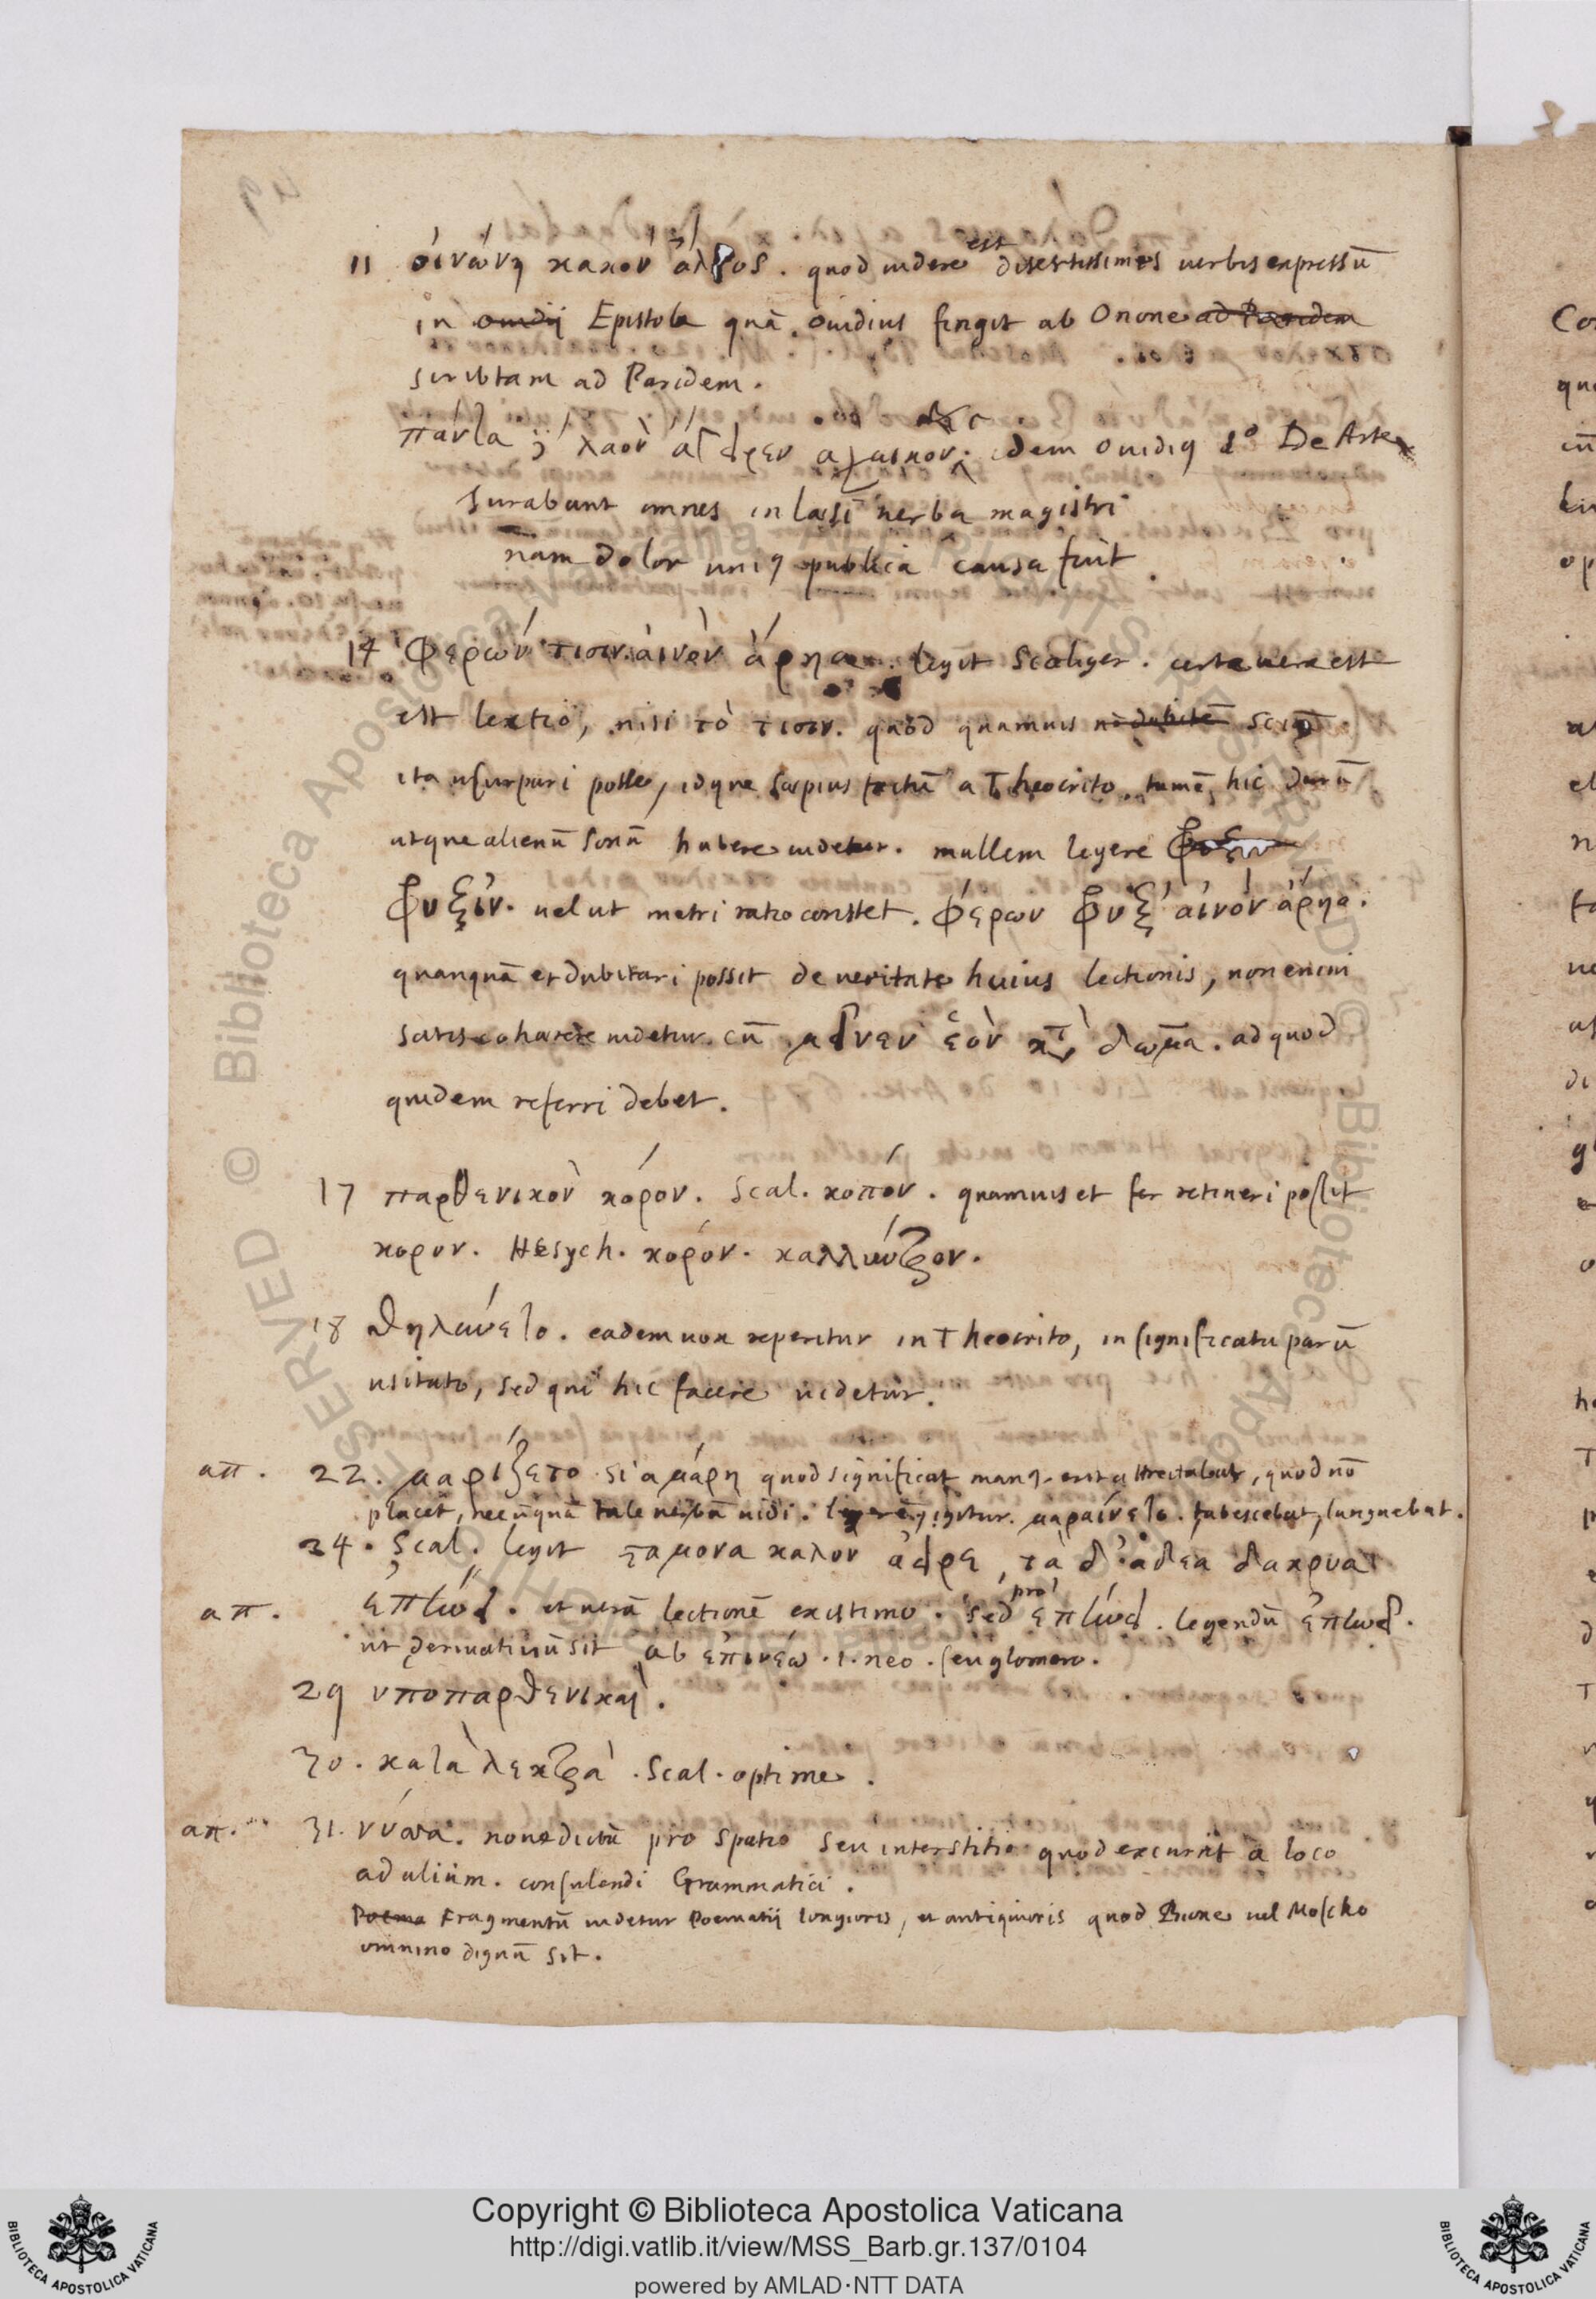 11 οἰνώνῃ κακὸν ἄλγος. quod videre est disertissimis verbis expressū
in Ouidij Epistola quā Ouidius fingit ab Onone ad Paridem
scribtam ad Paridem.
πάντα δ λαὸν ἄγειρεν ἀχαιικόν. idem Ouidiꝯ 1º De Arte
Iurabant omnes in laesi verba magistri
nam dolor uniꝯ publica causa fuit.
14 φερων τισιν αἰνὸν ἄρηα. legit Scaliger. certe vera est
est lectio, nisi τὸ τισιν. quod quamvis nō dubitē sciā
ita usurpari posse, idque saepius factū a Theocrito, tamē hic durū
atque alienū sonū habere videtur. mallem legere φυξιν
φυξιν. vel ut metri ratio constet. φέρων φυξ' αἰνὸν ἄρηα.
quanquā et dubitari possit de veritate huius lectionis, non enim
satis cohaerere videtur. cū μεῖνεν ἑὸν κτ̀ δῶμα. ad quod
quidem referri debet.
17 παρθενικὸν κόρον. Scal. κοπόν. quamvis et fer retineri possit
κορον. Hesych. κορόν. καλλιωτζον.
18 θηλύνετο. eadem vox reperitur in Theocrito, in significatu parū
usitato, sed qui hic facere videtur.
απ. 22. μαρίζετο si a μάρη quod significat manꝯ erit attrectabat, quod nō
placet, nec ūquā tale verbū vidi. legerē igitur. μαραίνετο. tabescebat, languebat.
24. Scal. legit σταμονα καλον ἄειρε, τὰ δ' ἁδεα δακρυα
απ. ἐπτώει. et verā lectionē existimo. sed pro ἐπτώει. legendū ἐπτωει.
ut derivativū sit ab ἐπινέω .i. neo. seu glomero.
29 υποπαρθενικαὶ.
30. κατὰ λεκτρὰ. Scal. optime.
απ. 31. νύσσα. nove dictū pro spatio seu interstitio quod excurrit à loco
ad alium. consulendi Grammatici.
Poema Fragmentū videtur Poematij longioris, et antiquioris quod Bione vel Moscho
omnino dignū sit.
Copyright © Biblioteca Apostolica Vaticana
http://digi.vatlib.it/view/MSS_Barb.gr.137/0104
powered by AMLAD·NTT DATA
BIBLIOTECA APOSTOLICA VATICANA
BIBLIOTECA APOSTOLICA VATICANA